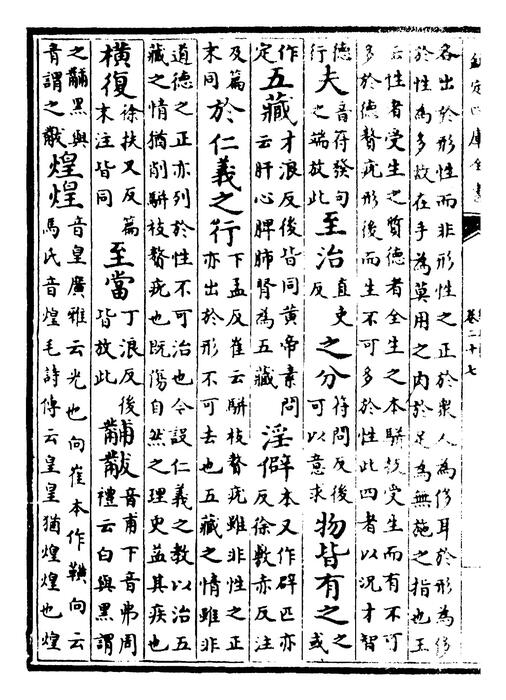 欽定四庫全書
卷二十七
各出於形性而非形性之正於衆人為侈耳於形為侈
於性為多故在手為莫用之肉於足為無施之指也王
云性者受生之質德者全生之本駢拇受生而有不可
多於德贅疣形後而生不可多於性此四者以況才智
德行夫音符發句之端放此至治直吏反之分符問反後可以意求物皆有之之或
作定五藏才浪反後皆同黃帝素問云肝心脾肺腎為五藏淫僻本又作辟匹亦反徐敷亦反注
及篇末同於仁義之行下孟反崔云駢枝贅疣雖非性之正亦出於形不可去也五藏之情雖非
道德之正亦列於性不可治也今設仁義之教以治五
藏之情猶削駢枝贅疣也既傷自然之理更益其疾也
橫復徐扶又反篇末注皆同至當丁浪反後皆放此黼黻音甫下音弗周禮云白與黑謂
之黼黑與青謂之黻煌煌音皇廣雅云光也向崔本作向云馬氏音煌毛詩傳云皇皇猶煌煌也煌